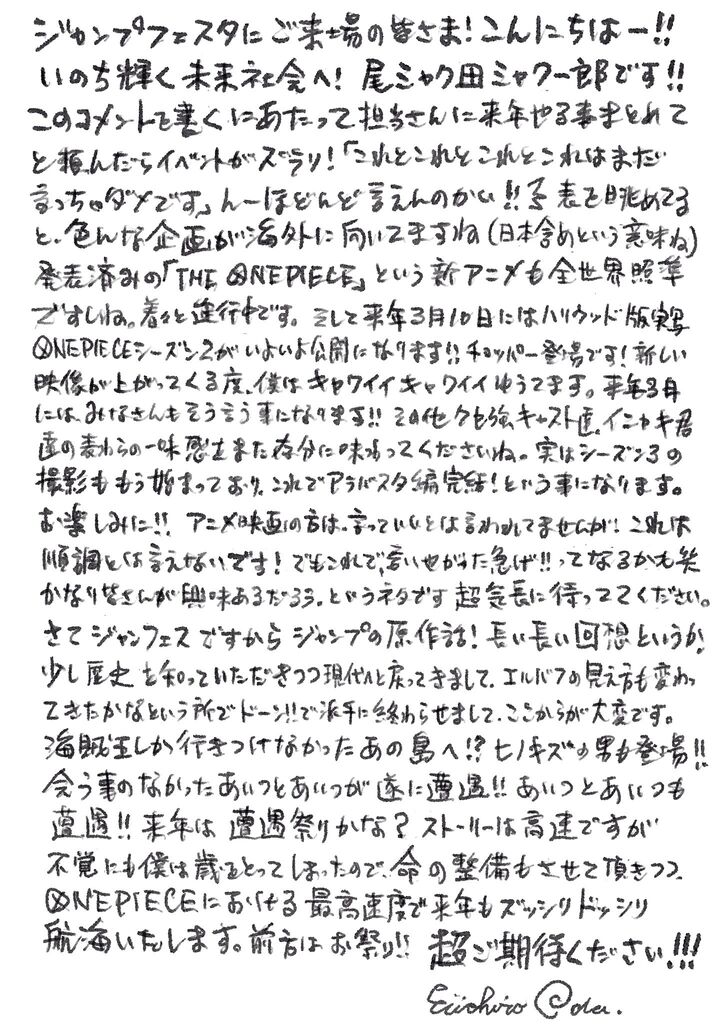 ジャンプフェスタにご来場の皆さま!こんにちはー!!
いのち輝く未来社会へ! 尾ミャク田ミャク一郎です!!
このコメントを書くにあたって担当さんに来年やる事まとめて
と頼んだらイベントがズラリ!「これとこれとこれとこれはまだ
言っちゃダメです」んーほどんど言えんのかい!!表を眺めてる
と、色んな企画が海外に向いてますね(日本含めという意味ね)
発表済みの「THE ONE PIECE」という新アニメも全世界照準
ですしね。着々と進行中です。そして来年3月10日にはハリウッド版実写
ONE PIECEシーズン2がいよいよ公開になります!!チョッパー登場です!新しい
映像が上がってくる度、僕はキャワイイキャワイイゆうてます。来年3月
には、みなさんもそう言う事になります!!その他クセ強キャスト達、イニャキ君
達の麦わらの一味感をまた存分に味わってくださいね。実はシーズン3の
撮影ももう始まっており、これでアラバスタ編完結!という事になります。
お楽しみに!! アニメ映画の方は、言っていいとは言われてませんが!これは
順調とは言えないです!でもこれで、言いやがった急げ!!ってなるかも笑
かなり皆さんが興味あるだろう、というネタです 超気長に待っててください。
さてジャンフェスですからジャンプの原作話!長い長い回想というか、
少し歴史を知っていただきつつ現代へと戻ってきまして、エルバフの見え方も変わっ
てきたかなという所でドーン!!で派手に終わらせまして、ここからが大変です。
海賊王しか行きつけなかったあの島へ!?ヒノキズの男も登場!!
会う事のなかったあいつとあいつが遂に遭遇!!あいつとあいつも
遭遇!!来年は遭遇祭りかな?ストーリーは高速ですが
不覚にも僕は歳をとってしまったので、命の整備もさせて頂きつつ、
ONE PIECEにおける最高速度で来年もズッシリドッシリ
航海いたします。前方はお祭り!! 超ご期待ください!!!
Eiichiro Oda.